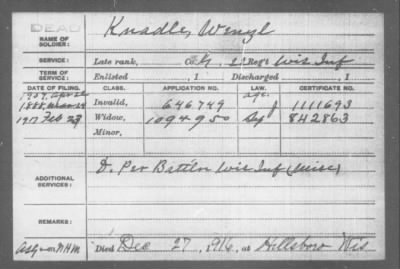 DEAD
NAME OF SOLDIER: Knadle, Wenzl
SERVICE: Late rank, Co. Reg't Wis Inf
TERM OF SERVICE: Enlisted , 1 Discharged , 1
DATE OF FILING. CLASS. APPLICATION No. LAW. CERTIFICATE No.
age.
1888 Invalid, 646749 J 1111693
1917 Feb 23 Widow, 1094950 Sep 842863
Minor,
ADDITIONAL SERVICES: D. Per Battln Wis Inf (misc)
REMARKS:
Died Dec 27, 1916, at Hillsboro Wis